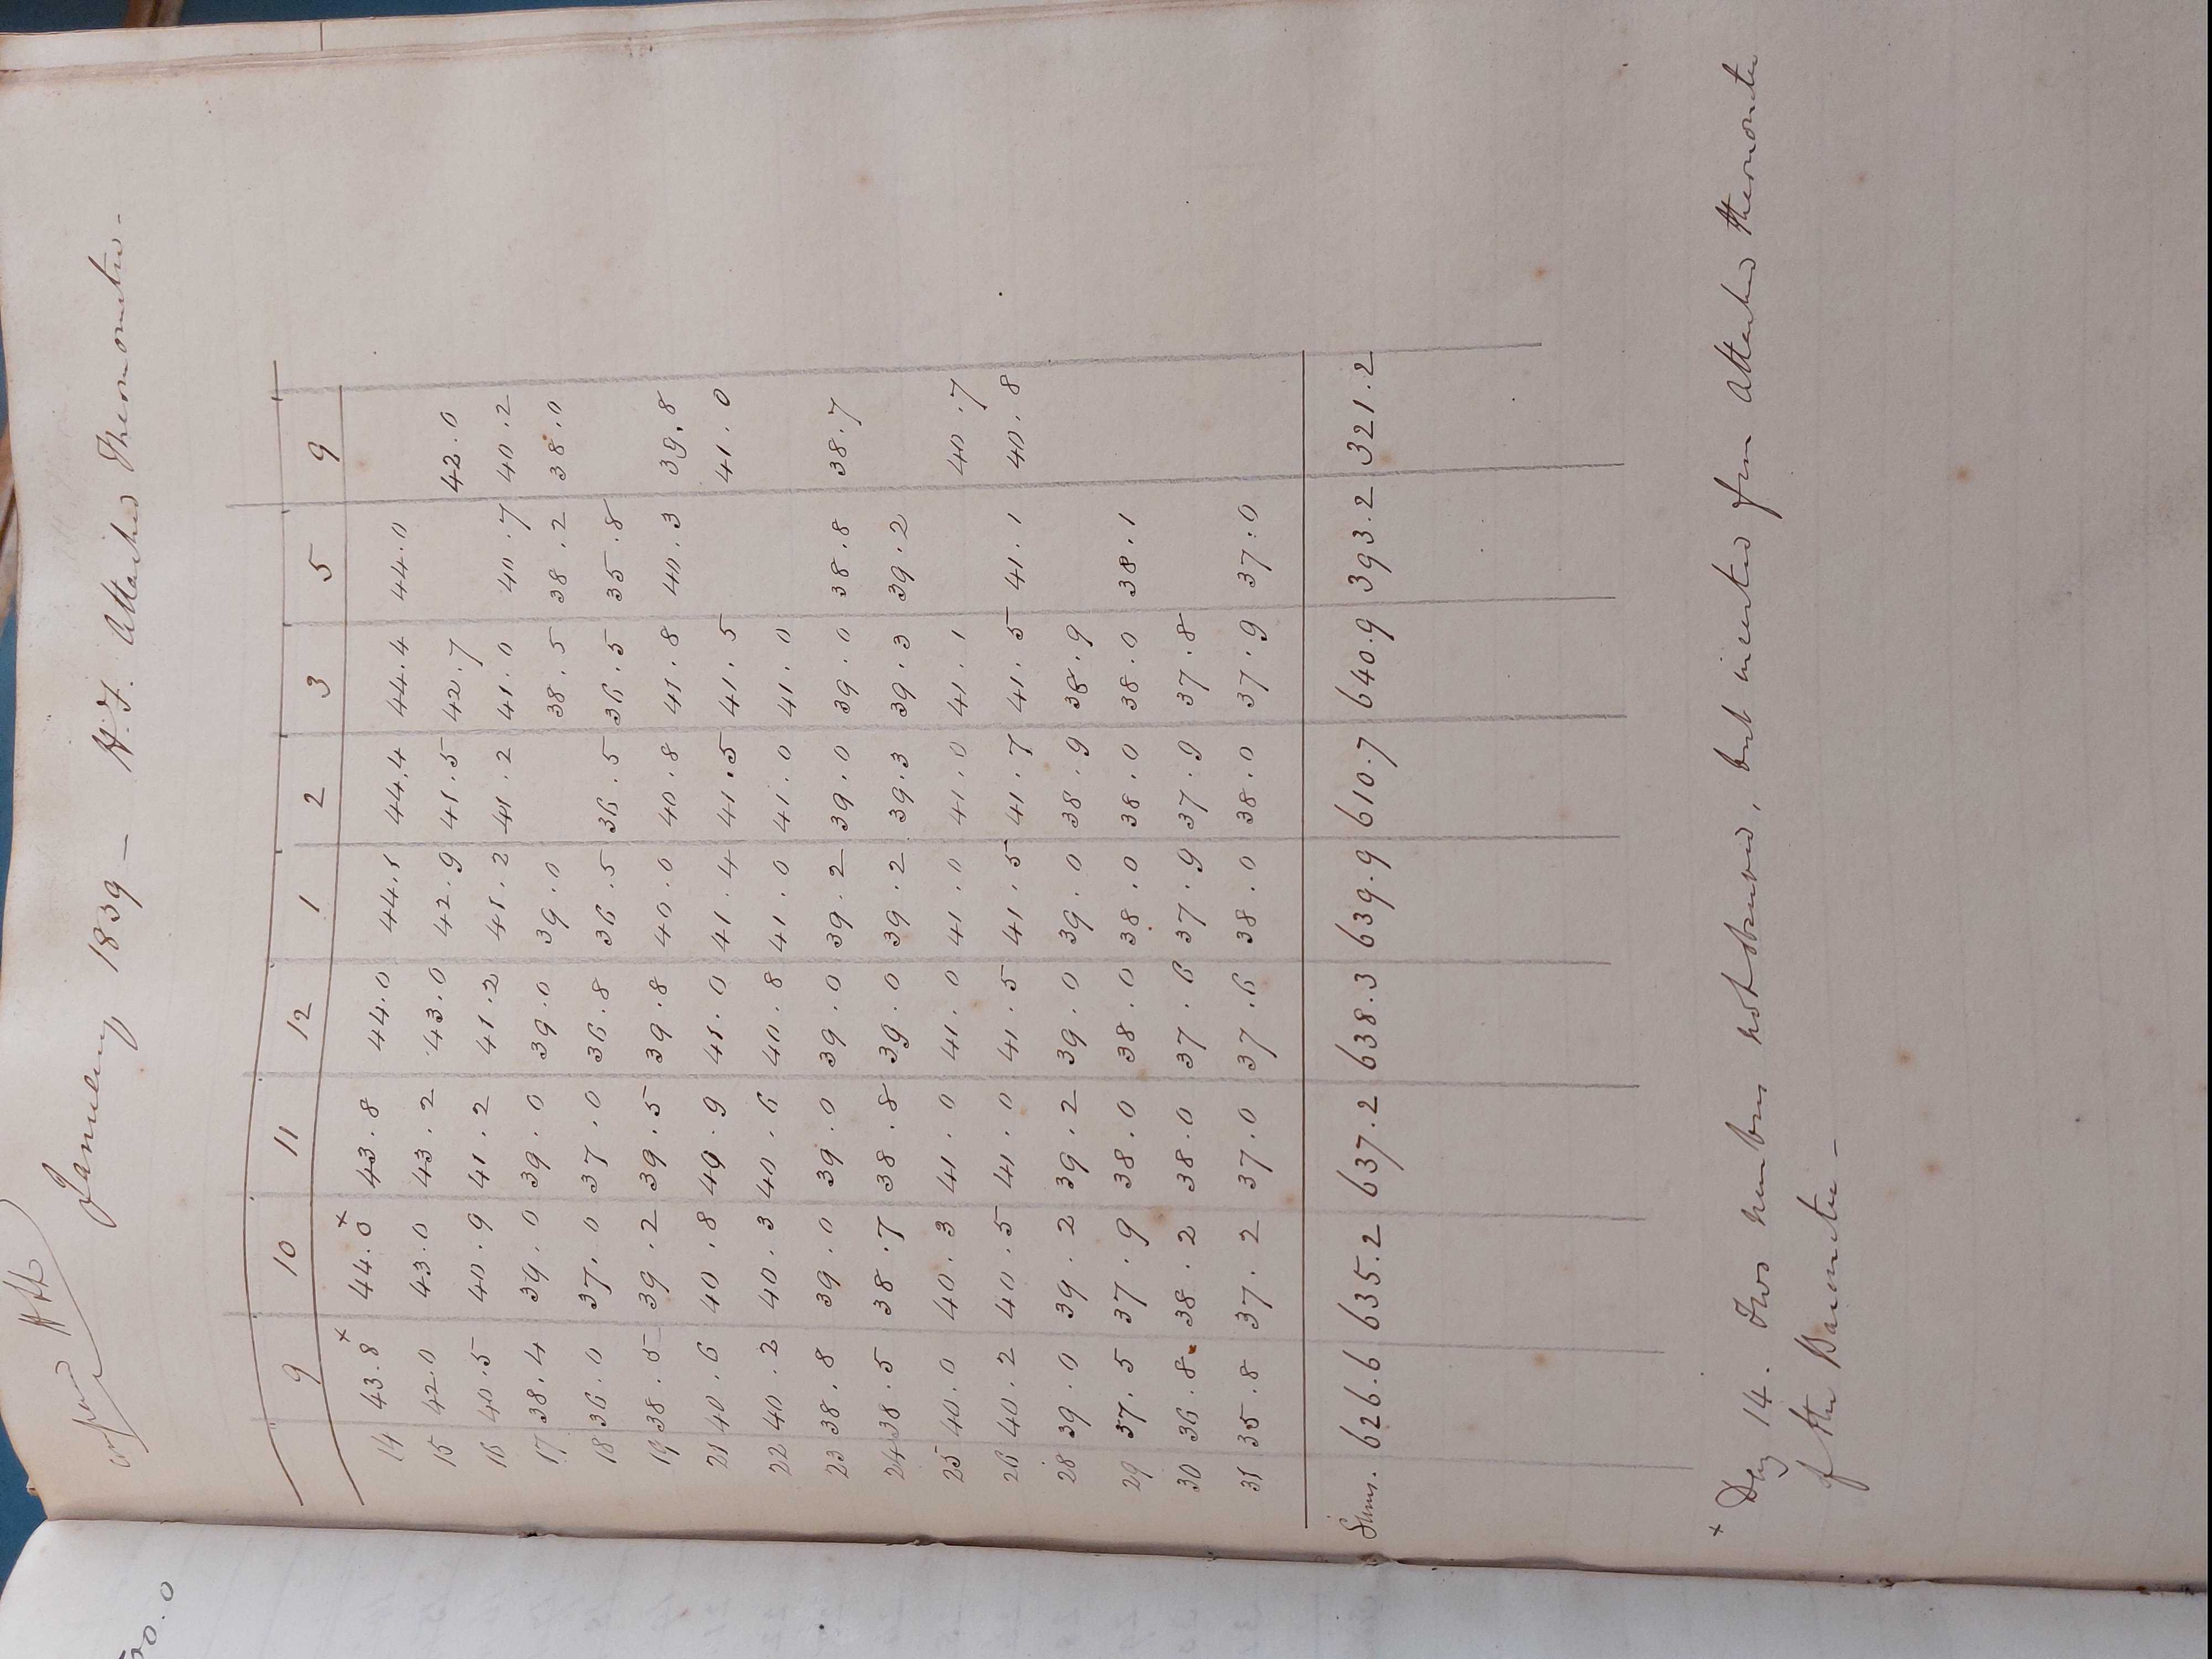 00.0
compared
January 1839 – H.F. Attached Thermometer –
9 10 11 12 1 2 3 5 9
14 43.8 × 44.0 × 43.8 44.0 44.1 44.4 44.4 44.0
15 42.0 43.0 43.2 43.0 42.9 41.5 42.7 42.0
16 40.5 40.9 41.2 41.2 41.2 41.2 41.0 40.7 40.2
17 38.4 39.0 39.0 39.0 39.0 38.5 38.2 38.0
18 36.0 37.0 37.0 36.8 36.5 36.5 36.5 35.8
19 38.5 39.2 39.5 39.8 40.0 40.8 41.8 40.3 39.8
21 40.6 40.8 40.9 41.0 41.4 41.5 41.5 41.0
22 40.2 40.3 40.6 40.8 41.0 41.0 41.0
23 38.8 39.0 39.0 39.0 39.2 39.0 39.0 38.8 38.7
24 38.5 38.7 38.8 39.0 39.2 39.3 39.3 39.2
25 40.0 40.3 41.0 41.0 41.0 41.0 41.1 40.7
26 40.2 40.5 41.0 41.5 41.5 41.7 41.5 41.1 40.8
28 39.0 39.2 39.2 39.0 39.0 38.9 38.9
29 37.5 37.9 38.0 38.0 38.0 38.0 38.0 38.1
30 36.8 38.2 38.0 37.6 37.9 37.9 37.8
31 35.8 37.2 37.0 37.6 38.0 38.0 37.9 37.0
Sums. 626.6 635.2 637.2 638.3 639.9 610.7 640.9 393.2 321.2
× Day 14. Two numbers not observed, but inserted from Attached thermometer
of the Barometer –